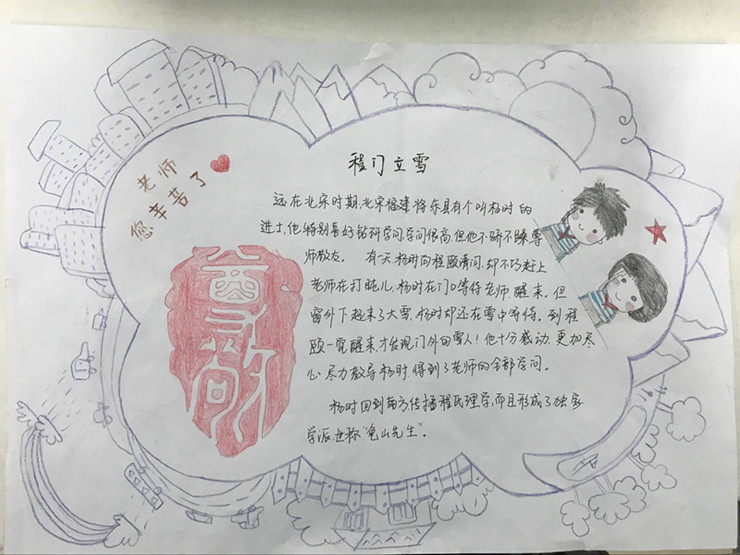 程门立雪
老师
您辛苦了
远在北宋时期,北宋福建将东县有个叫杨时的
进士,他特别喜好钻研学问,学问很高,但他不骄不躁,尊
师敬友。 有一天,杨时向程颐请问,却不巧赶上
老师在打盹儿,杨时在门口等待老师醒来。但
窗外下起来了大雪,杨时却还在雪中等待。到程
颐一觉醒来,才发现门外的雪人!他十分感动,更加尽
心尽力教导杨时,得到了老师的全部学问。
杨时回到南方传播程氏理学,而且形成了独家
学派,世称“龟山先生”。
尊敬